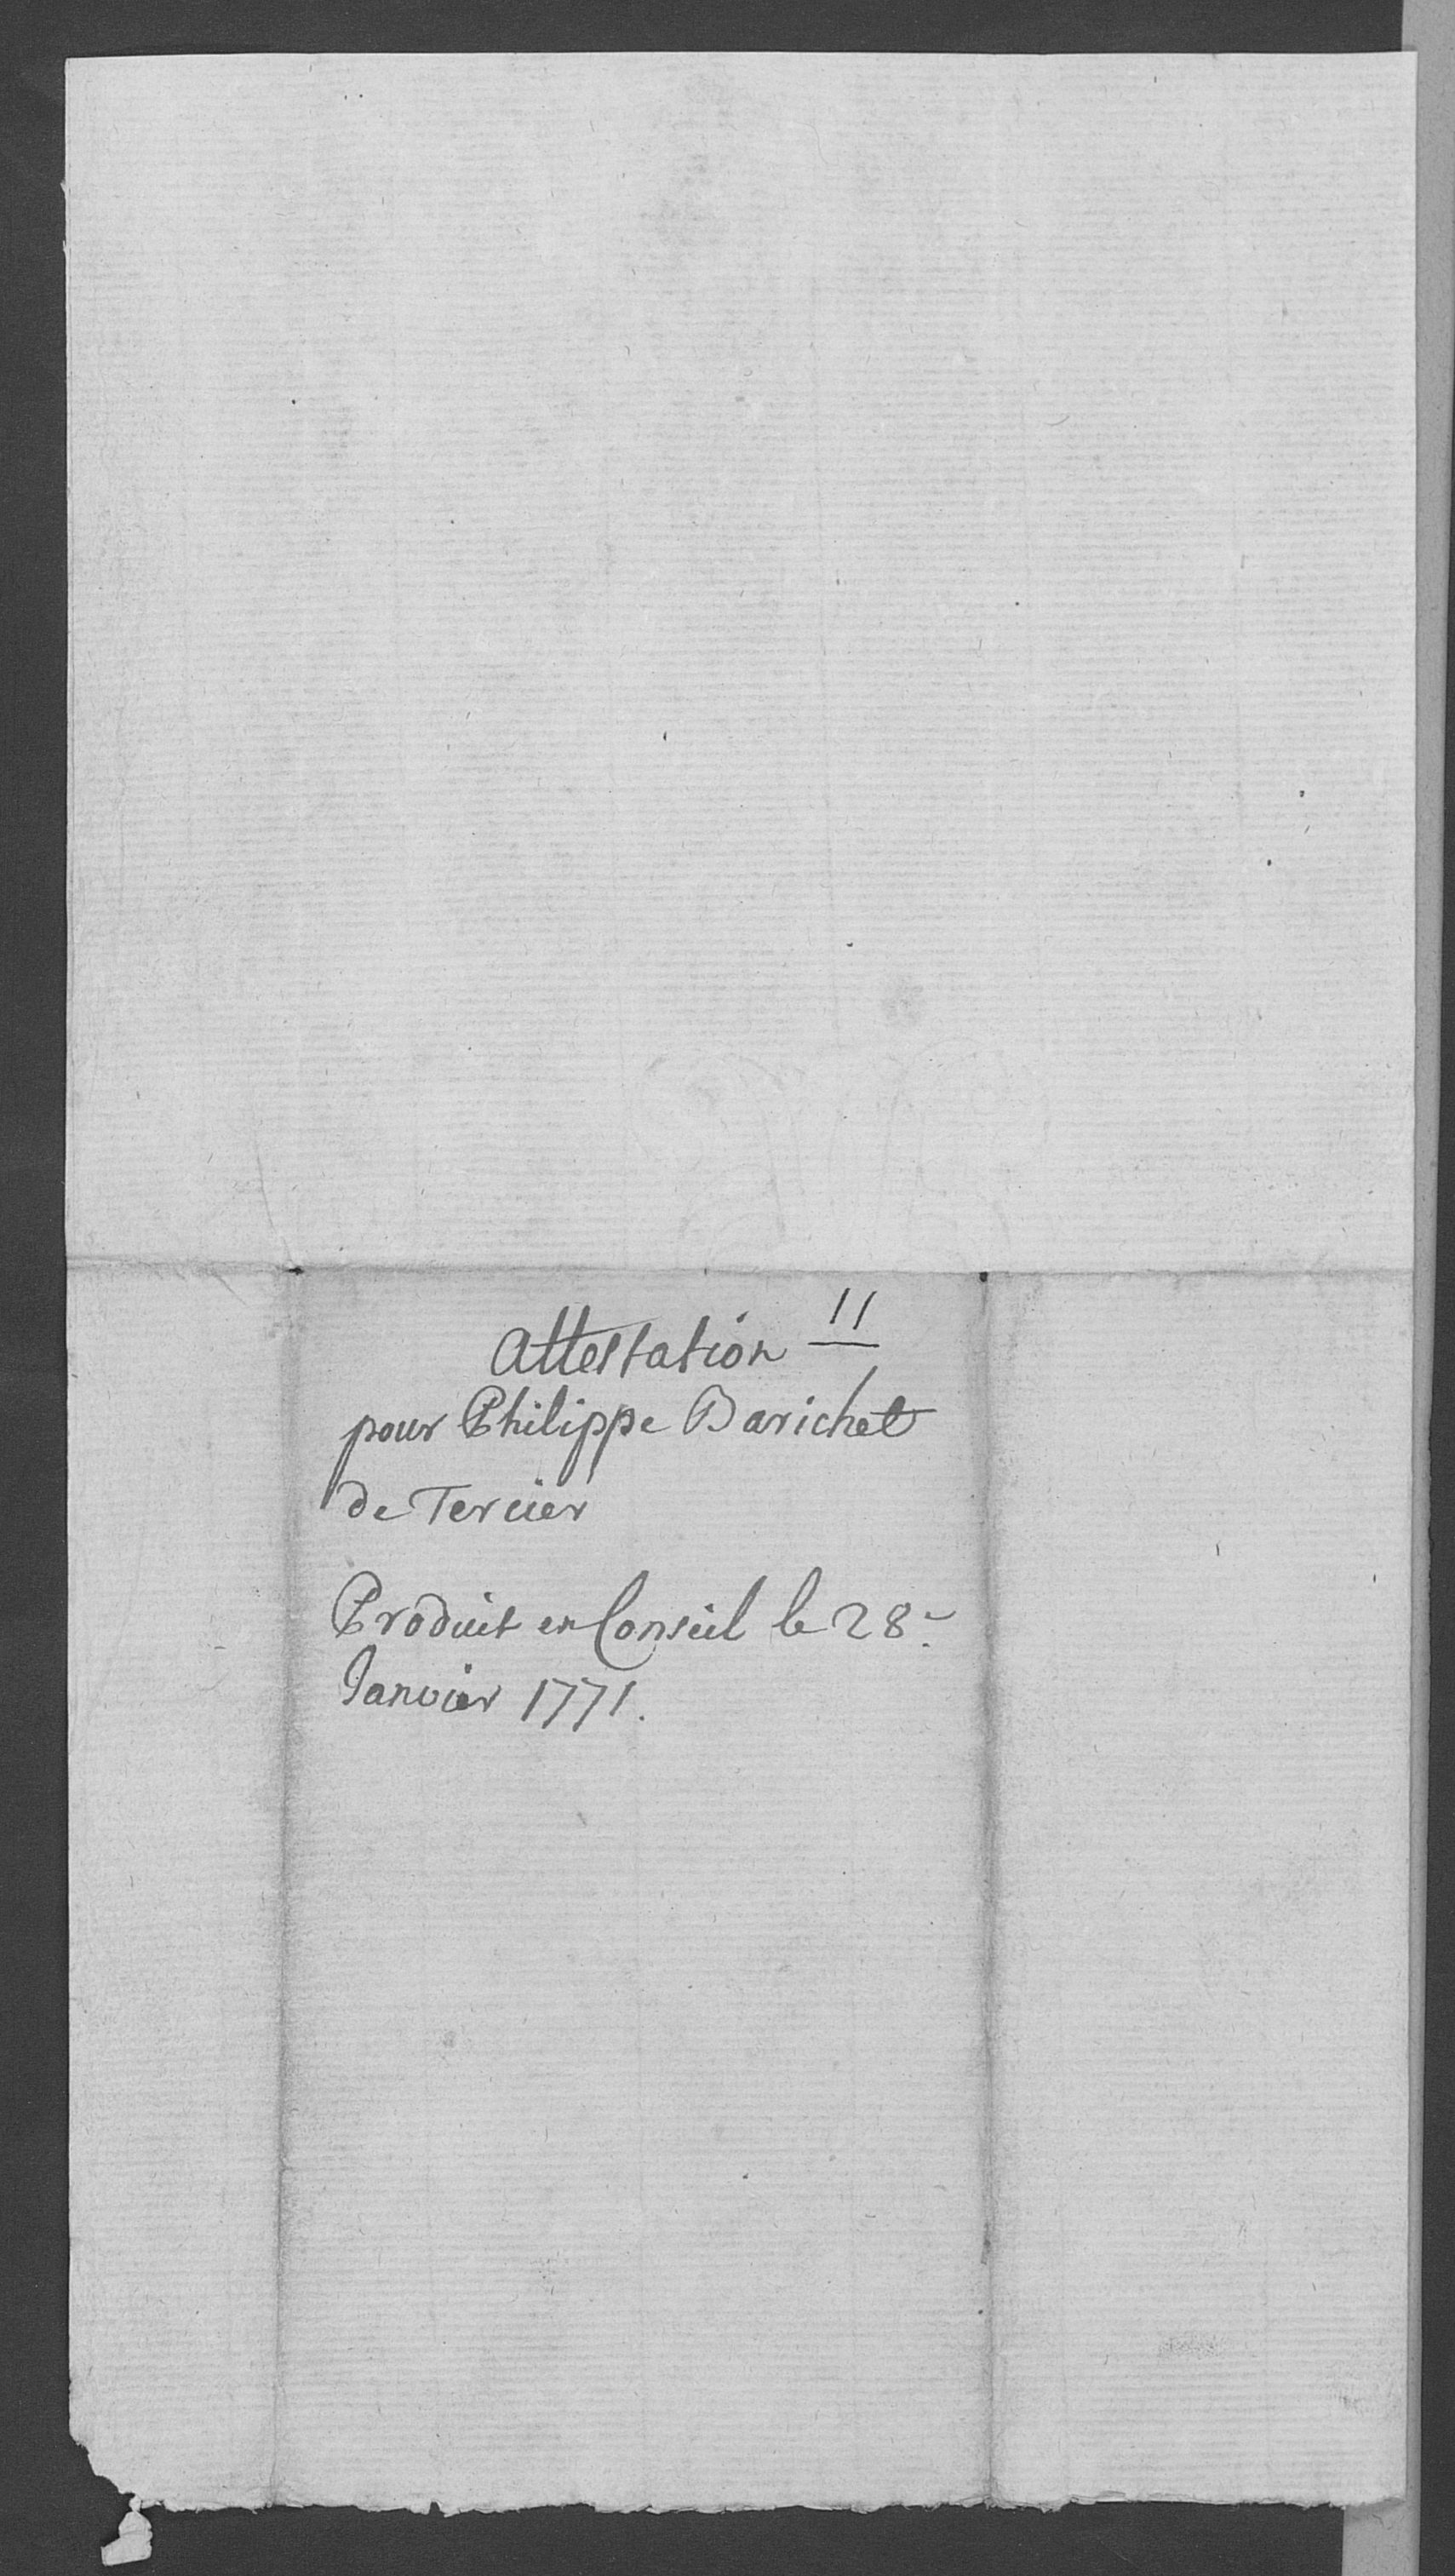 11
Attestation
pour Philippe Barichet
de Tercier
Produit en Conseil le 28.
Janvier 1771.